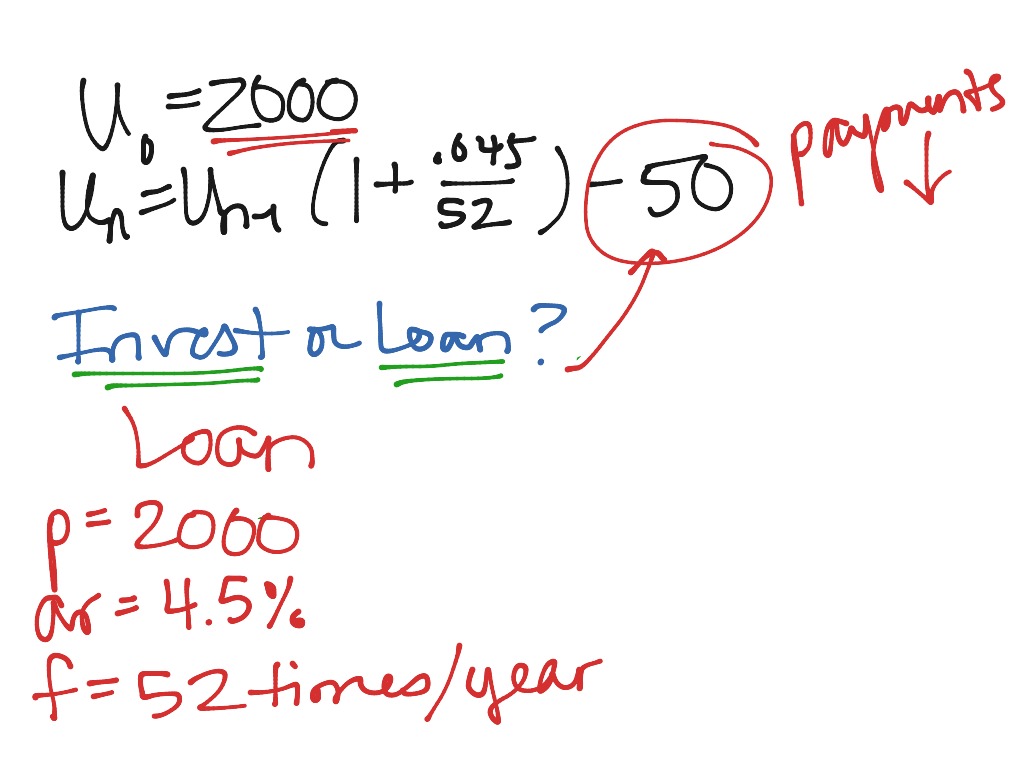 U₀ = 2000
Uₙ = Uₙ₋₁ (1 + .045/52) - 50 payments
Invest or Loan?
Loan
p = 2000
ar = 4.5%
f = 52 times/year